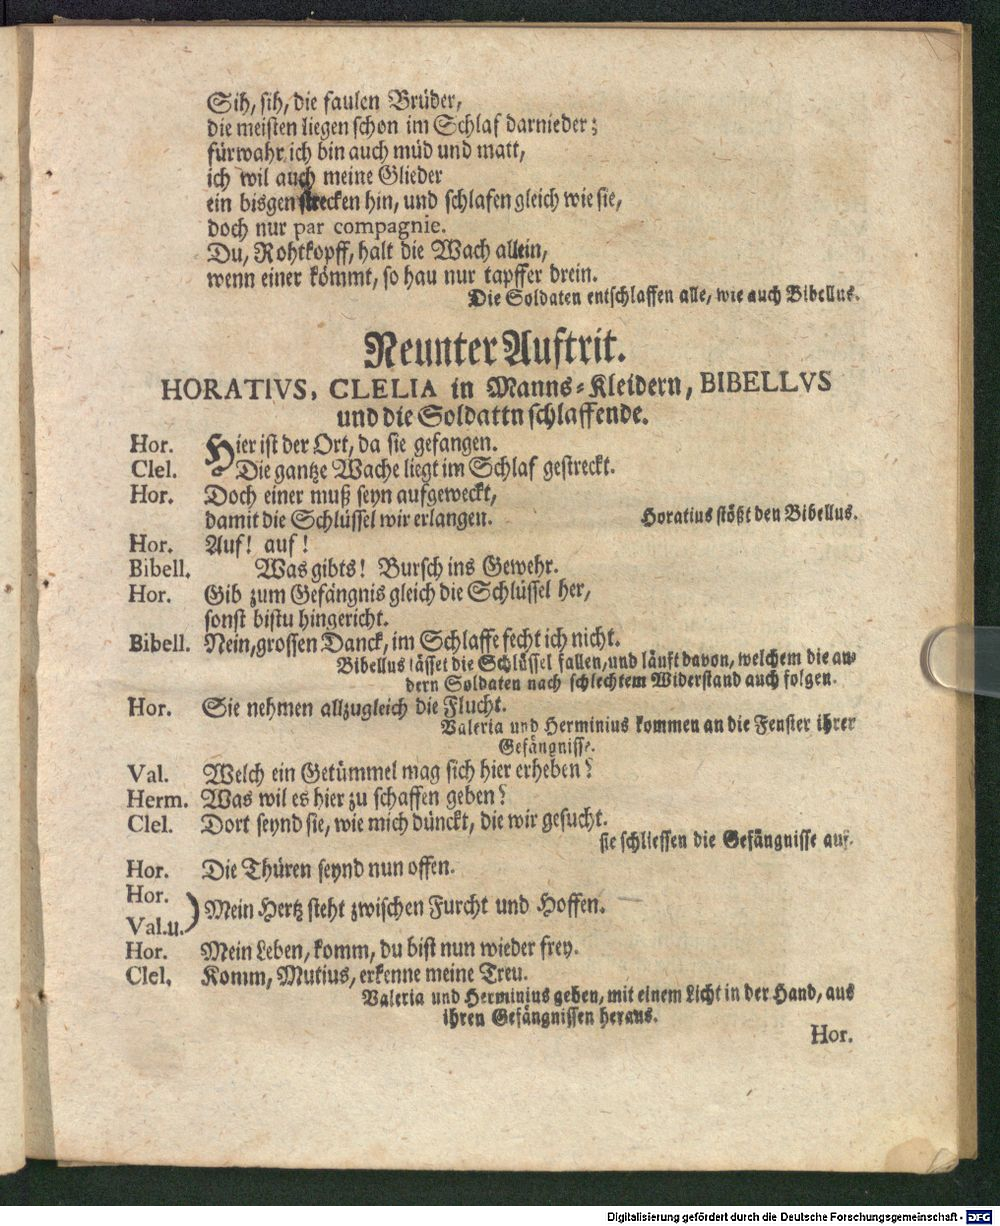 Sih, sih, die faulen Brüder,
die meisten liegen schon im Schlaf darnieder;
fürwahr ich bin auch müd und matt,
ich wil auch meine Glieder
ein bisgen strecken hin, und schlafen gleich wie sie,
doch nur par compagnie.
Du, Rohtkopff, halt die Wach allein,
wenn einer kömmt, so hau nur tapffer drein.
Die Soldaten entschlaffen alle, wie auch Bibellus.
Neunter Auftrit.
HORATIVS, CLELIA in Manns-Kleidern, BIBELLVS
und die Soldattn schlaffende.
Hor. Hier ist der Ort, da sie gefangen.
Clel. Die gantze Wache liegt im Schlaf gestreckt.
Hor. Doch einer muß seyn aufgeweckt,
damit die Schlüssel wir erlangen. Horatius stößt den Bibellus.
Hor. Auf! auf!
Bibell. Was gibts! Bursch ins Gewehr.
Hor. Gib zum Gefängnis gleich die Schlüssel her,
sonst bistu hingericht.
Bibell. Nein, grossen Danck, im Schlaffe fecht ich nicht.
Bibellus lässet die Schlüssel fallen, und läuft davon, welchem die an-
dern Soldaten nach schlechtem Widerstand auch folgen.
Hor. Sie nehmen allzugleich die Flucht.
Valeria und Herminius kommen an die Fenster ihrer
Gefängnisse.
Val. Welch ein Getümmel mag sich hier erheben?
Herm. Was wil es hier zu schaffen geben?
Clel. Dort seynd sie, wie mich dünckt, die wir gesucht.
sie schliessen die Gefängnisse auf.
Hor. Die Thüren seynd nun offen.
Hor.
Val.u.) Mein Hertz steht zwischen Furcht und Hoffen.
Hor. Mein Leben, komm, du bist nun wieder frey.
Clel. Komm, Mutius, erkenne meine Treu.
Valeria und Herminius gehen, mit einem Licht in der Hand, aus
ihren Gefängnissen heraus.
Hor.
Digitalisierung gefördert durch die Deutsche Forschungsgemeinschaft - DFG